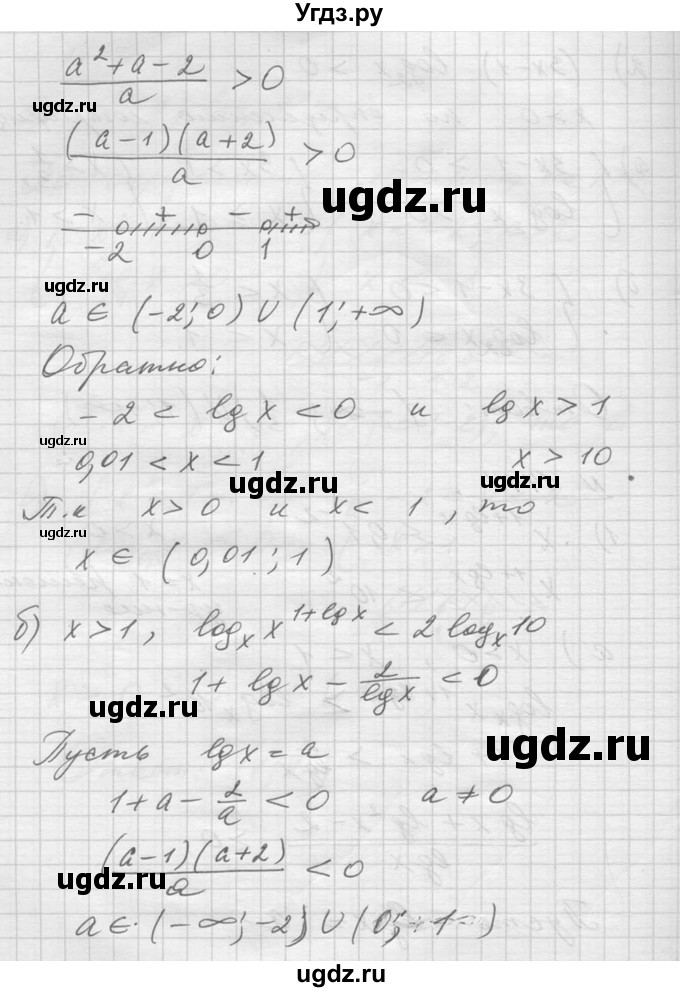 Угдз.ру
(a² + a - 2)/a > 0
ugdz.ru
(a - 1)(a + 2)/a > 0
ugdz.ru
- + - +
-2 0 1
ugdz.ru
a ∈ (-2; 0) ∪ (1; +∞)
Обратно:
-2 < lg x < 0 и lg x > 1
ugdz.ru
0,01 < x < 1 x > 10
ugdz.ru ugdz.ru
Т.к x > 0 и x < 1, то
ugdz.ru
x ∈ (0,01; 1)
б) x > 1, logₓ x^(1+lg x) < 2 logₓ 10
1 + lg x - 2/lg x < 0
ugdz.ru
Пусть lg x = a
ugdz.ru
1 + a - 2/a < 0 a ≠ 0
(a - 1)(a + 2)/a < 0
ugdz.ru
a ∈ (-∞; -2) ∪ (0; 1)
ugdz.ru